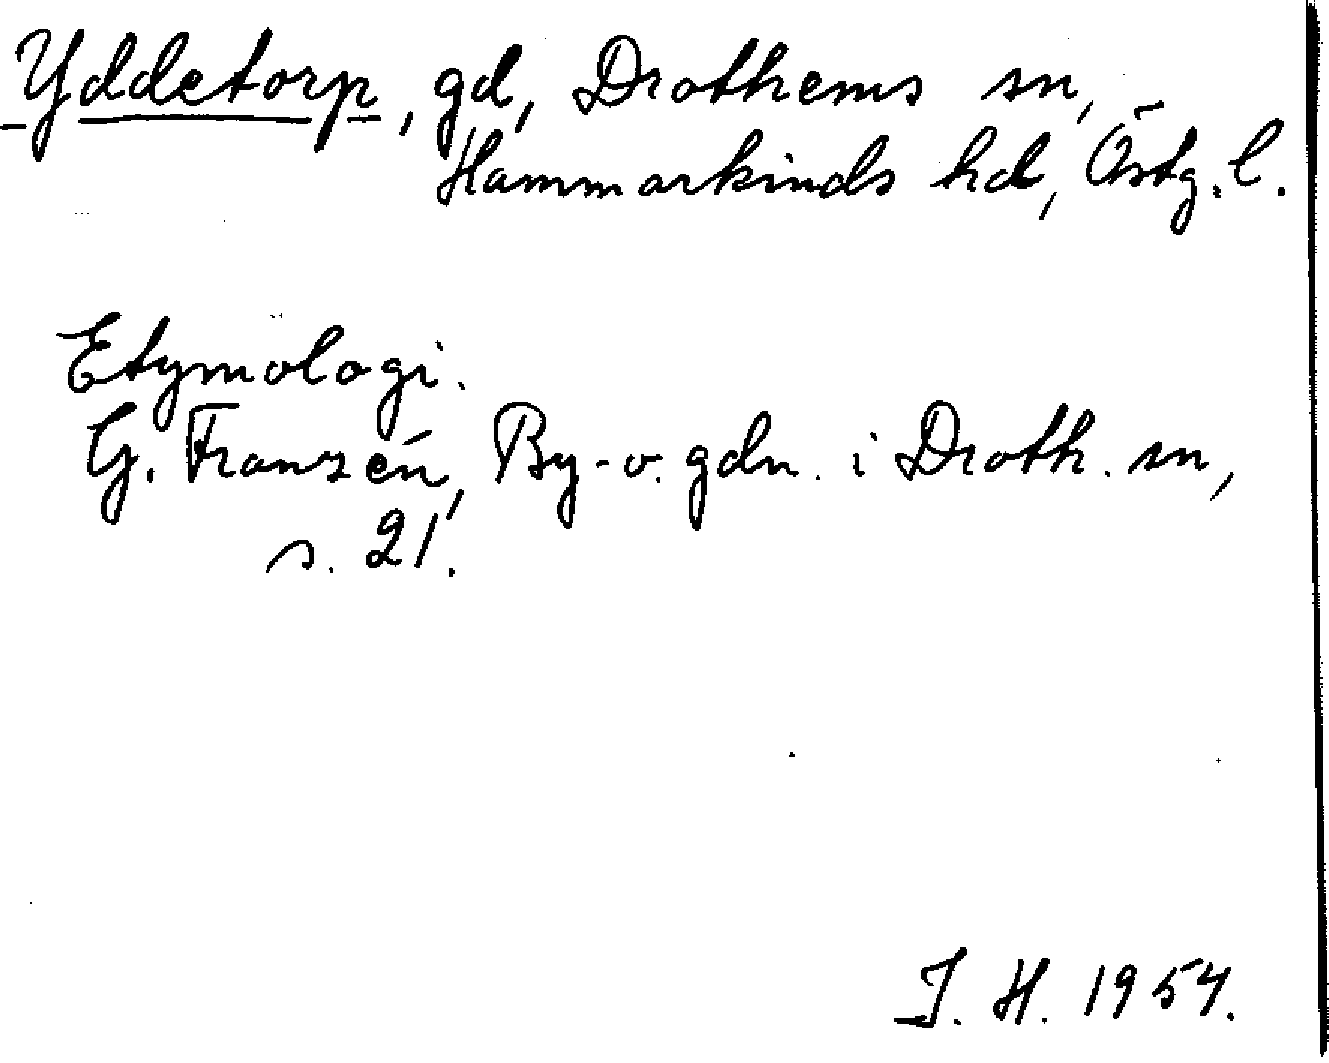 Yddetorp, gd, Drothems sn,
Hammarkinds hd, Östg. l.
Etymologi.
G. Franzén, By- o. gdn. i Droth. sn,
s. 21.
J. H. 1954.